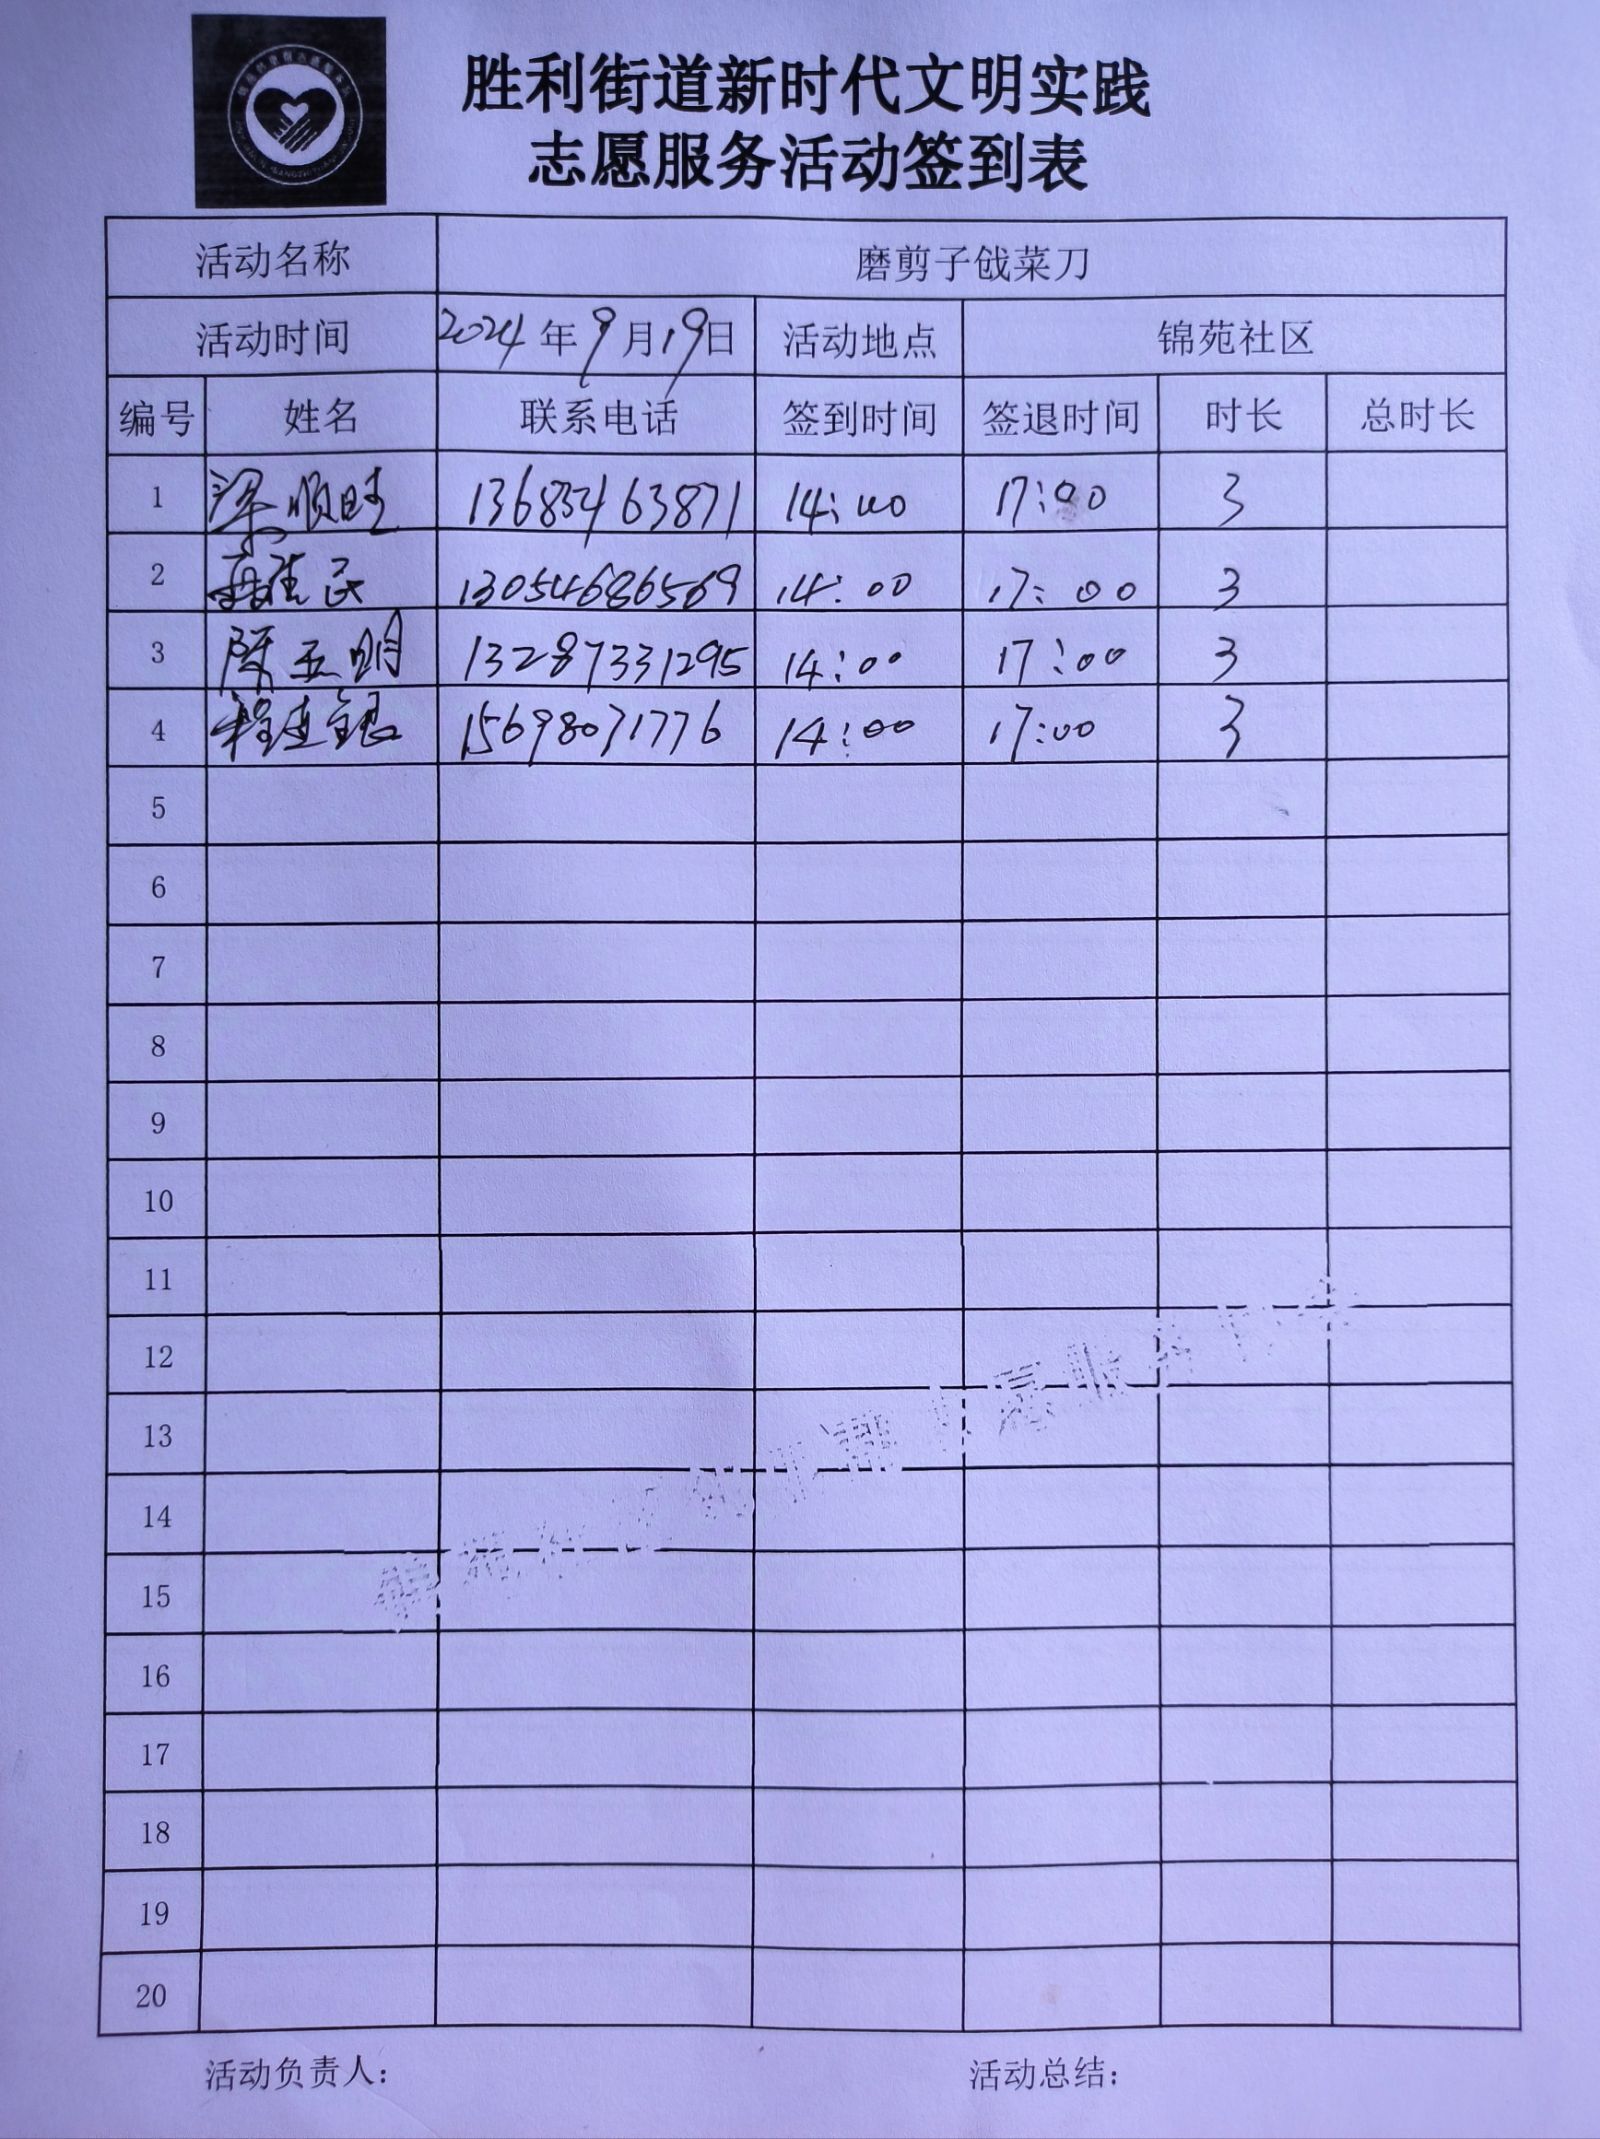 胜利街道新时代文明实践
志愿服务活动签到表
活动名称 磨剪子戗菜刀
活动时间 2024年9月19日 活动地点 锦苑社区
编号 姓名 联系电话 签到时间 签退时间 时长 总时长
1 梁顺旺 13683463871 14:00 17:00 3
2 13054686569 14:00 17:00 3
3 陈玉明 13287331295 14:00 17:00 3
4 程连银 15698071776 14:00 17:00 3
5
6
7
8
9
10
11
12
13
14
15
16
17
18
19
20
活动负责人： 活动总结：